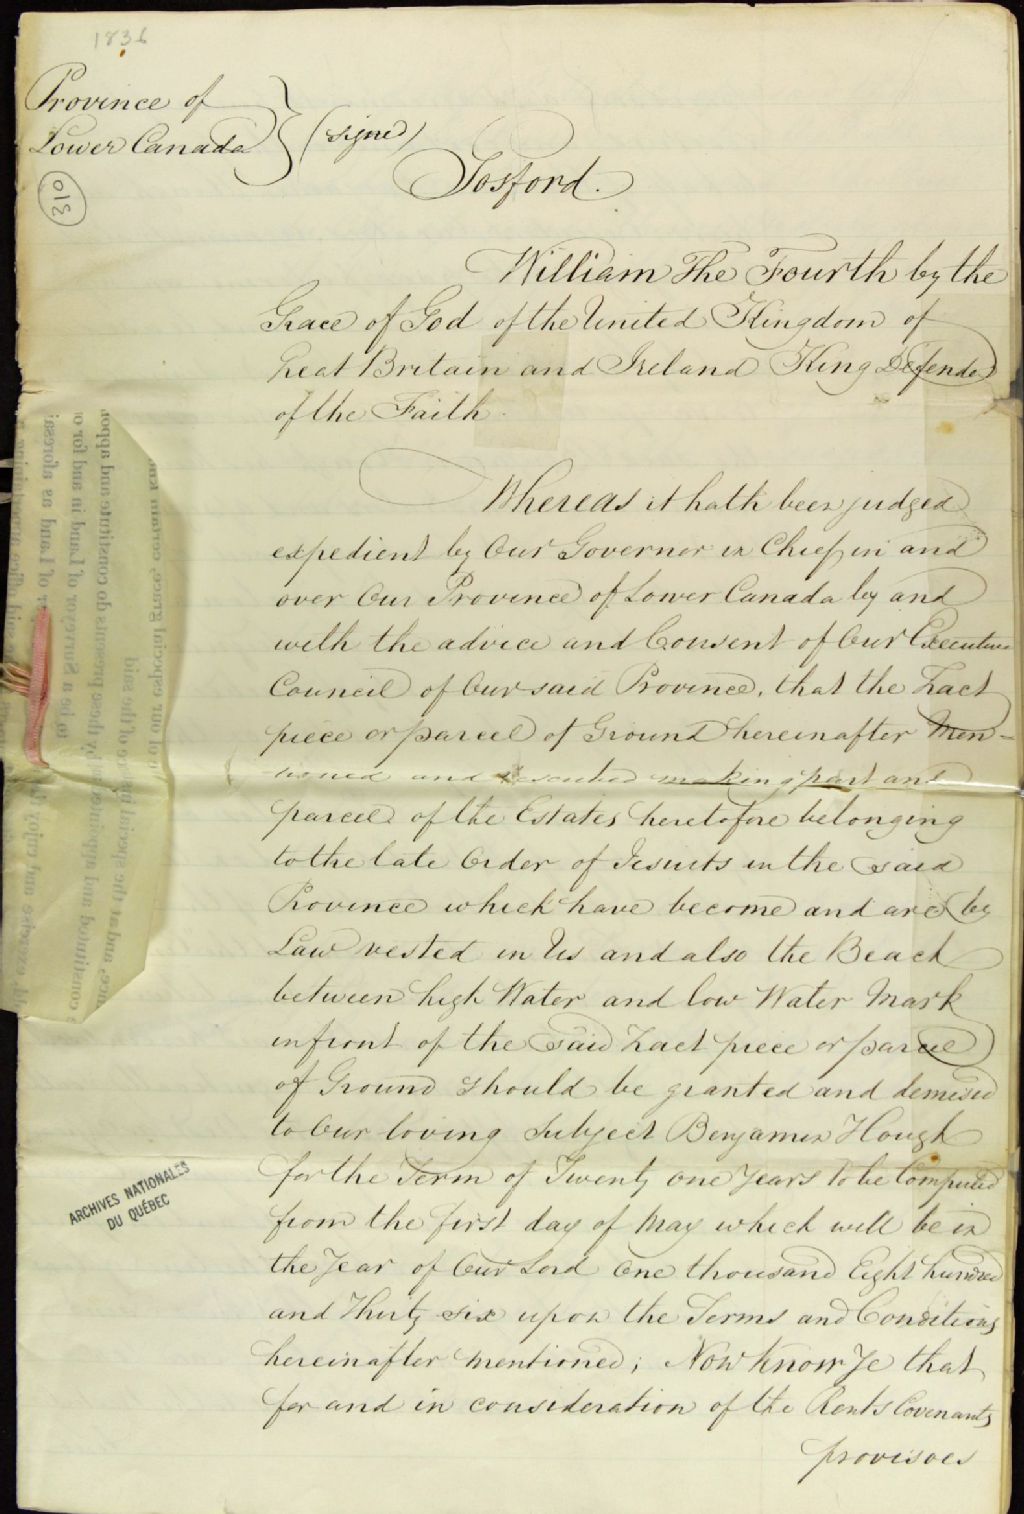 1836
Province of
Lower Canada
(signed)
Gosford.
310
William The Fourth by the
Grace of God of the United Kingdom of
Great Britain and Ireland King Defender
of the Faith.
Whereas it hath been judged
expedient by Our Governor in Chief in and
over Our Province of Lower Canada by and
with the advice and Consent of Our Executive
Council of Our said Province, that the Tract
piece or parcel of Ground hereinafter Men-
tioned and described making part and
parcel of the Estates heretofore belonging
to the late Order of Jesuits in the said
Province which have become and are by
Law vested in Us and also the Beach
between high Water and low Water Mark
in front of the said Tract piece or parcel
of Ground should be granted and demised
to Our loving Subject Benjamin Hough
for the Term of Twenty one Years to be Computed
from the first day of May which will be in
the Year of Our Lord One thousand Eight hundred
and Thirty six upon the Terms and Conditions
hereinafter mentioned; Now Know Ye that
for and in consideration of the Rents Covenants
provisoes
ARCHIVES NATIONALES
DU QUÉBEC
of our especial grace, certain kn
by these presents do constitute and appoi
to be a Surveyor of Land in and for
of Land as aforesai
constituted and appointed
and enjoy